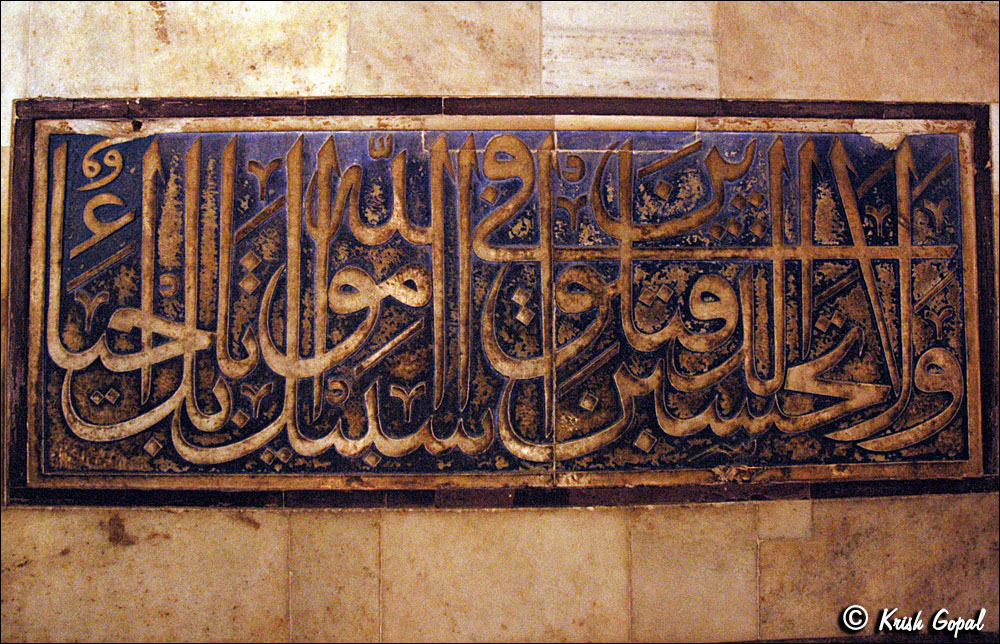 ولا تحسبن الذين قتلوا في سبيل الله امواتا بل احياء
© Krish Gopal